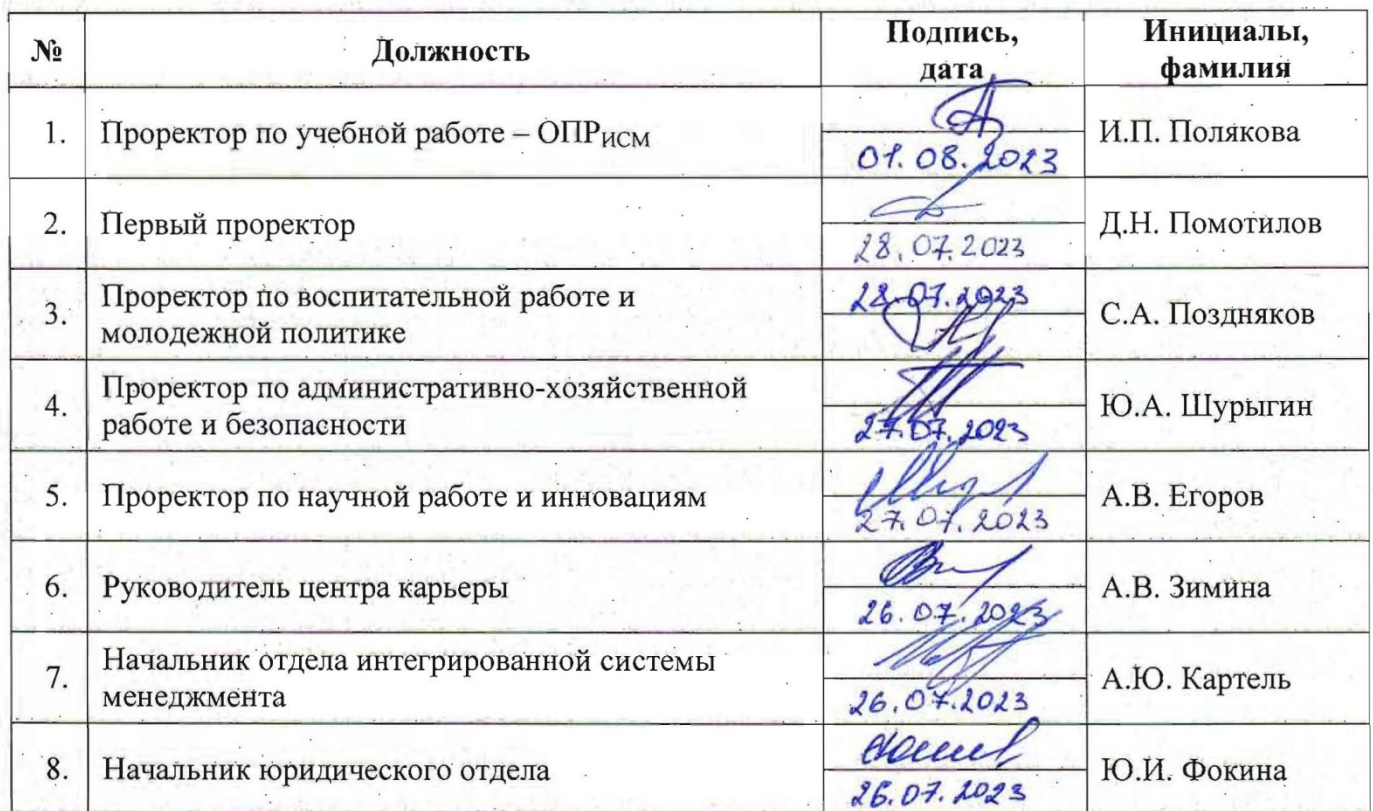 № Должность Подпись, дата Инициалы, фамилия
1. Проректор по учебной работе – ОПРИСМ 01.08.2023 И.П. Полякова
2. Первый проректор 28.07.2023 Д.Н. Помотилов
3. Проректор по воспитательной работе и
молодежной политике 28.07.2023 С.А. Поздняков
4. Проректор по административно-хозяйственной
работе и безопасности 27.07.2023 Ю.А. Шурыгин
5. Проректор по научной работе и инновациям 27.07.2023 А.В. Егоров
6. Руководитель центра карьеры 26.07.2023 А.В. Зимина
7. Начальник отдела интегрированной системы
менеджмента 26.07.2023 А.Ю. Картель
8. Начальник юридического отдела 26.07.2023 Ю.И. Фокина